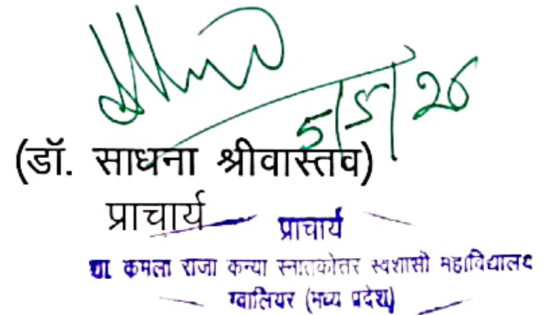 5/5/26
(डॉ. साधना श्रीवास्तव)
प्राचार्य
प्राचार्य
शा. कमला राजा कन्या स्नातकोत्तर स्वशासी महाविद्यालय
ग्वालियर (मध्य प्रदेश)